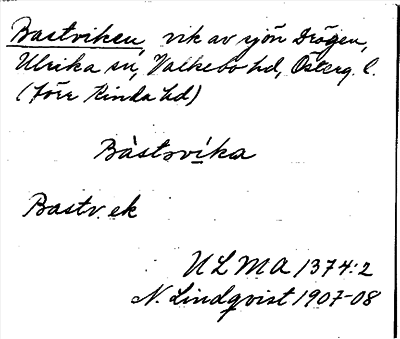 Bastviken, vik av sjön Drögen,
Ulrika sn, Valkebo hd, Österg. l.
(förr Kinda hd)
Bàstvíka
Bastv. ek
ULMA 1374:2
N. Lindqvist 1907-08